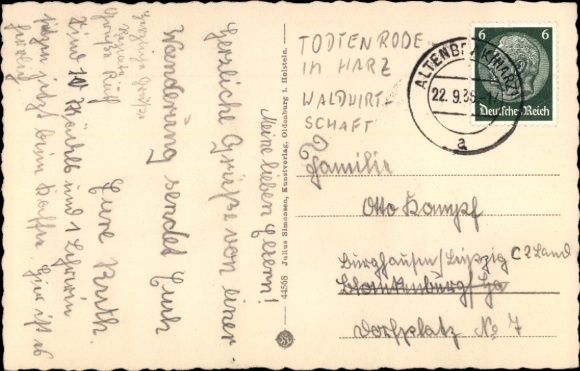 Meine lieben Eltern!
Herzliche Grüße von einer
Wanderung sendet Euch
Eure Ruth.
Sind 10 Mädels und 1 Lehrerin
jetzt beim Kaffee. Hier ist es
herrlich
Herzliche Grüße
Grüße Ruth
44568 Julius Simonsen, Kunstverlag, Oldenburg i. Holstein.
TODTENRODE
IM HARZ
WALDWIRT-
SCHAFT
ALTENBRAK (HARZ)
22.9.39
a
6 6
Deutsches Reich
Familie
Otto Kampf
Burghausen/Leipzig C2 Land
Blankenburg/Hz
Dorfplatz No 7